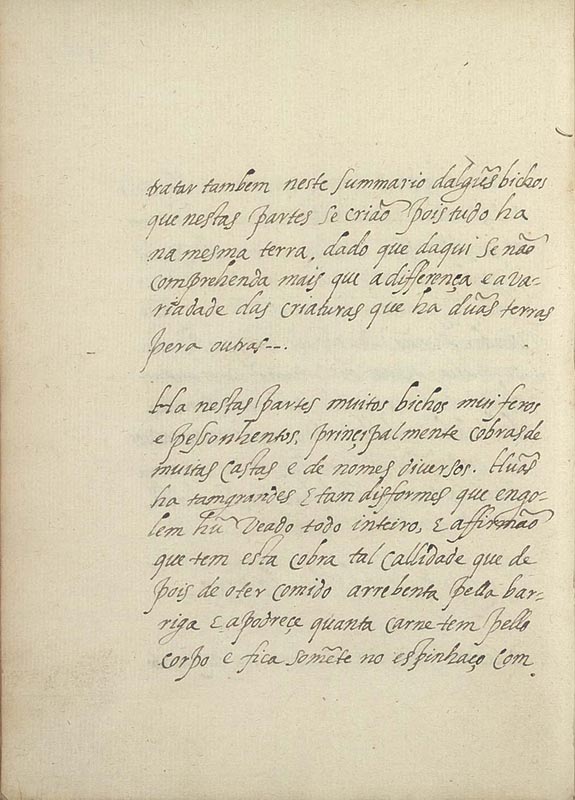 tratar tambem neste summario dalgũs bichos
que nestas partes se crião pois tudo ha
na mesma terra, dado que daqui se não
comprehenda mais que a differença e a va-
riadade das criaturas que ha dũas terras
pera outras--.
Ha nestas partes muitos bichos mui feros
e pessonhentos, prinçipalmente cobras de
muitas castas e de nomes diversos. Hũas
ha tamgrandes & tam disformes que engo-
lem hũ veado todo inteiro, & affirmão
que tem esta cobra tal callidade que de
pois de oter comido arrebenta pella bar-
riga & apodreçe quanta carne tem pello
corpo e fica somẽte no espinhaço com